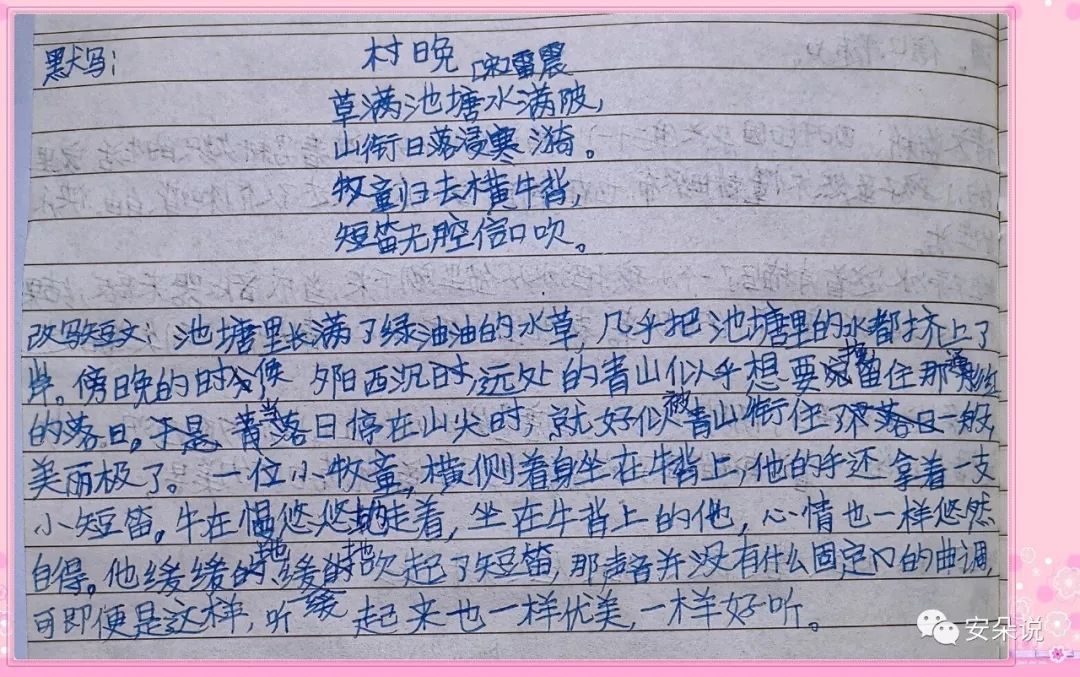 默写：
村晚 [宋]雷震
草满池塘水满陂，
山衔日落浸寒漪。
牧童归去横牛背，
短笛无腔信口吹。
改写短文：池塘里长满了绿油油的水草，几乎把池塘里的水都挤上了
岸。傍晚的时候 夕阳西沉时，远处的青山似乎想要挽留住那
的落日。于是，当落日停在山尖时，就好似被青山衔住了 一般，
美丽极了。一位小牧童，横侧着身坐在牛背上，他的手还拿着一支
小短笛。牛在慢悠悠地走着，坐在牛背上的他，心情也一样悠然
自得。他缓缓地 吹起了短笛，那声音并没有什么固定的曲调，
可即便是这样，听起来也一样优美，一样好听。
安朵说